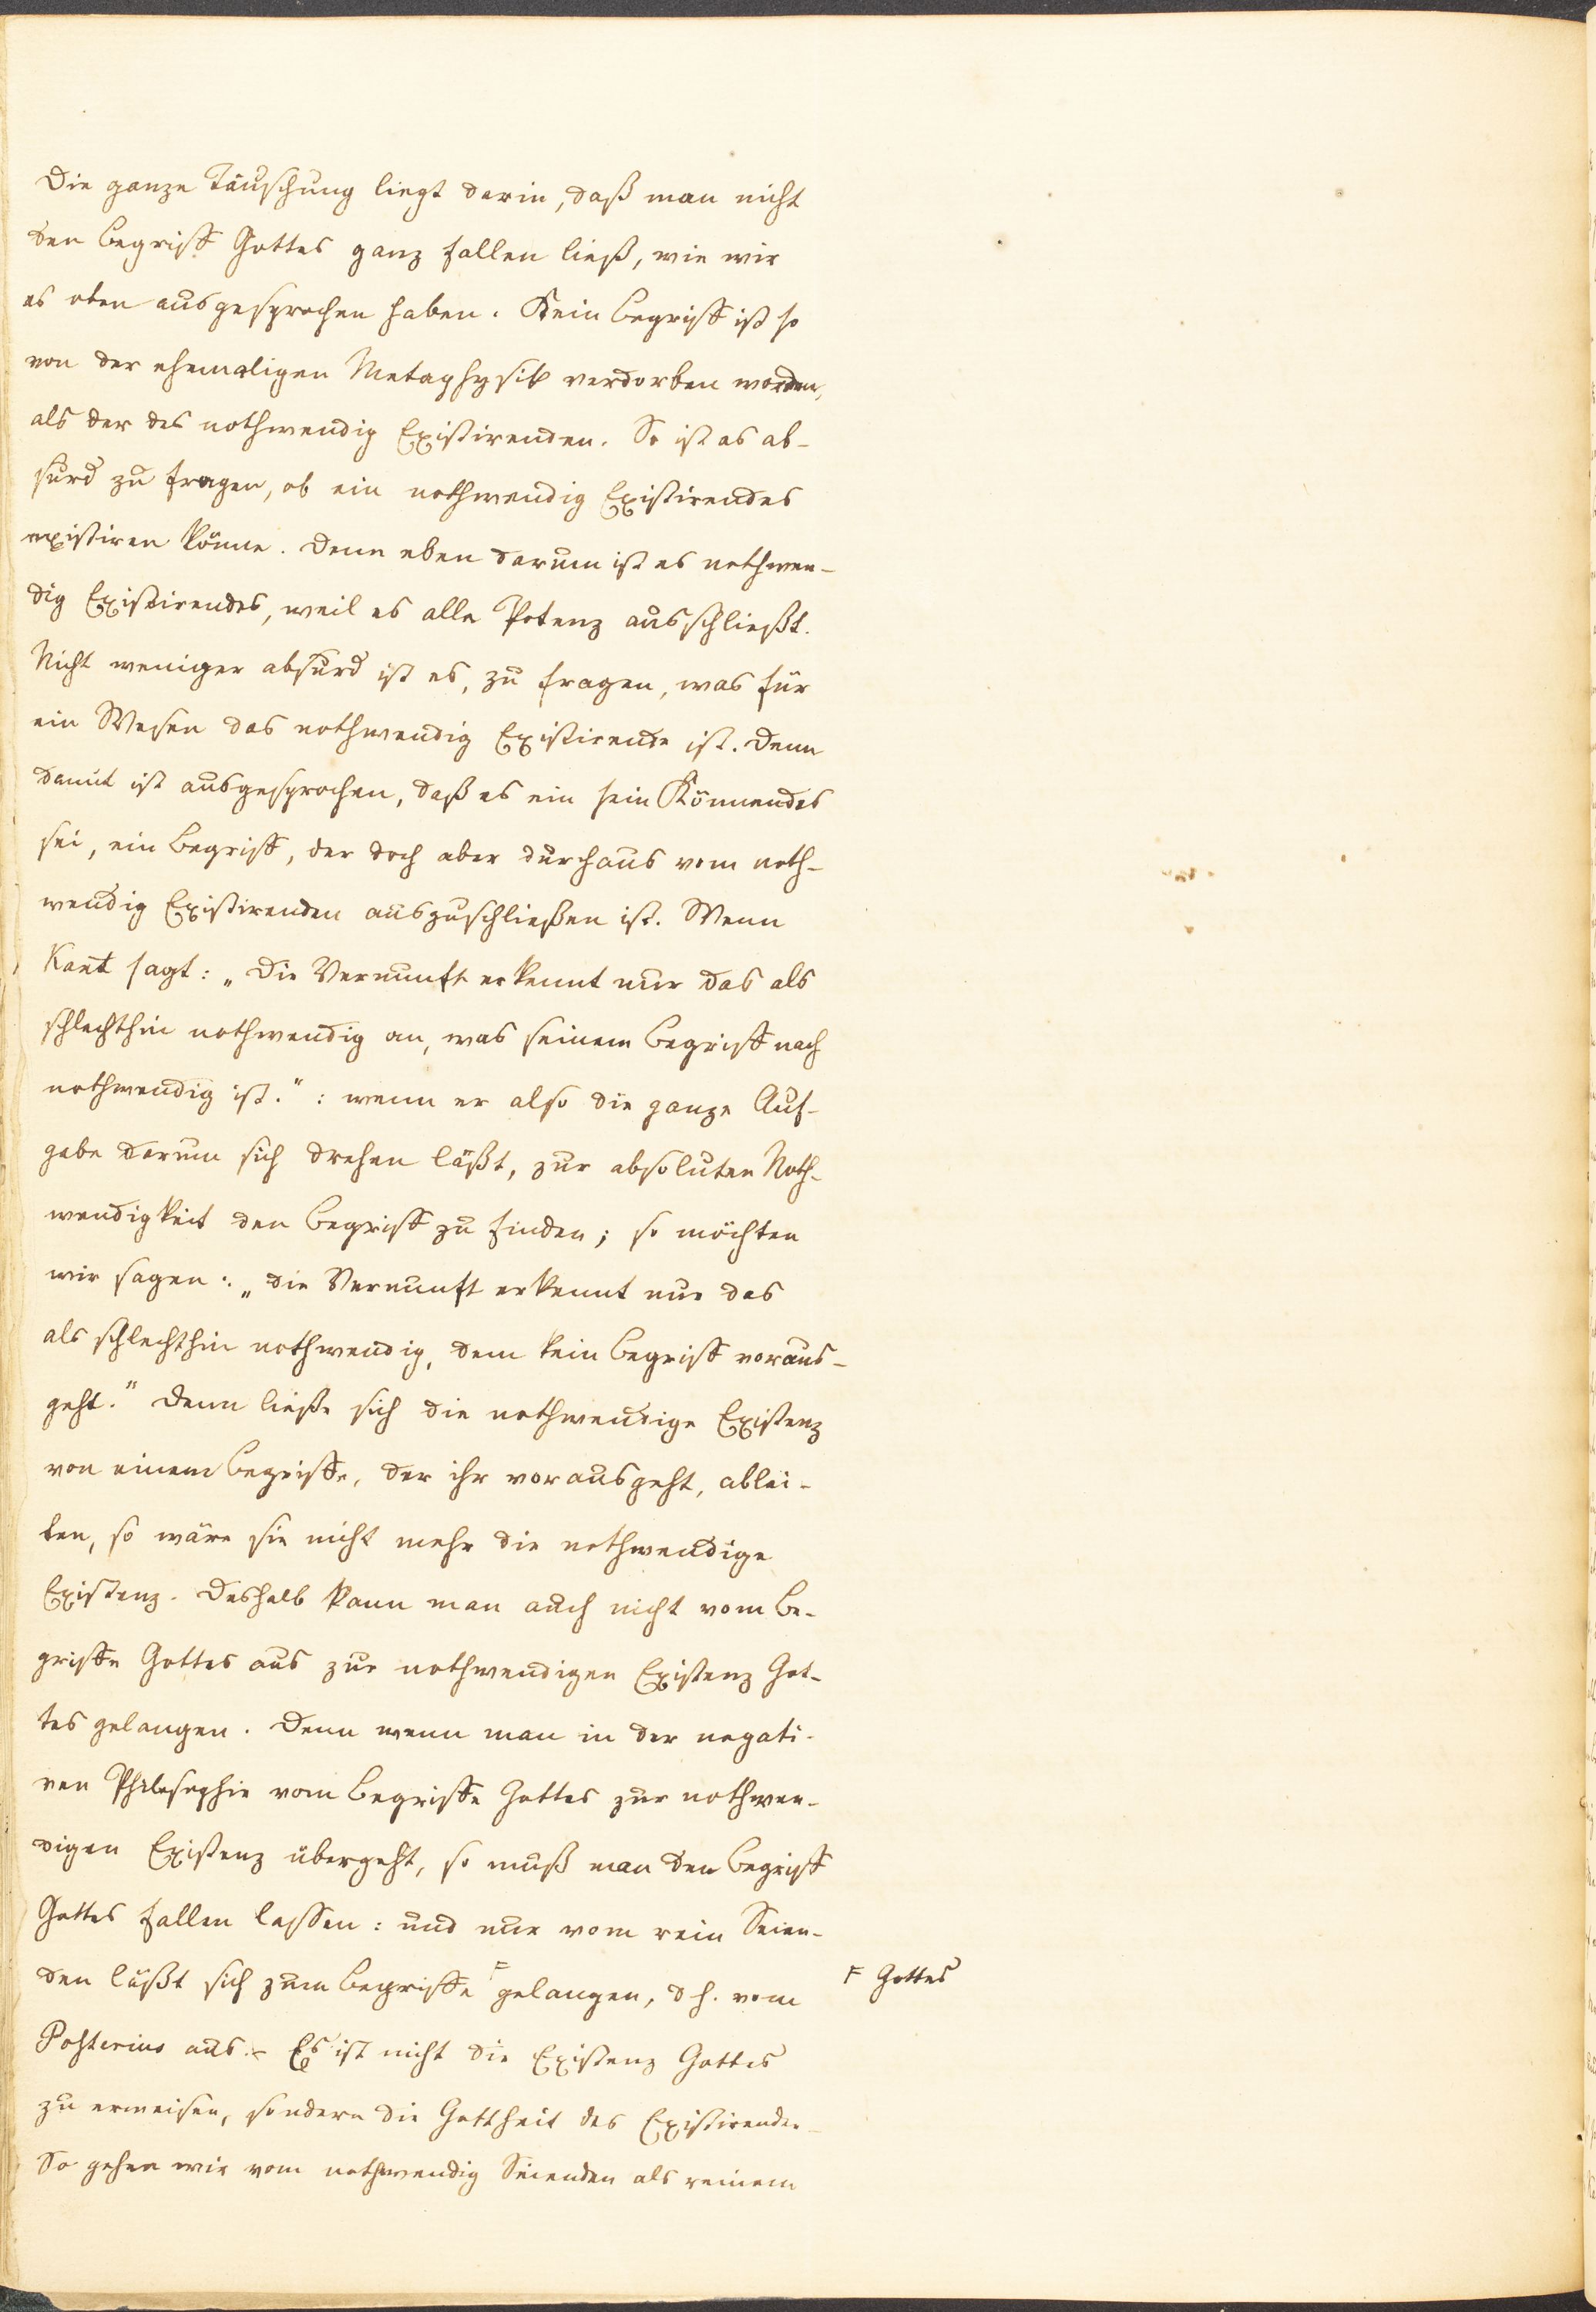 Die ganze Täuschung liegt darin, daß man nicht
den Begriff Gottes ganz fallen ließ, wie wir
es oben ausgesprochen haben. Kein Begriff ist so
von der ehemaligen Metaphysik verdorben worden,
als der des nothwendig Existirenden. So ist es ab-
surd zu fragen, ob ein nothwendig Existirendes
existiren könne. Denn eben darum ist es nothwen-
dig Existirendes, weil es alle Potenz ausschließt.
Nicht weniger absurd ist es, zu fragen, was für
ein Wesen das nothwendig Existirende ist. Denn
damit ist ausgesprochen, daß es ein sein Könnendes
sei, ein Begriff, der doch aber durchaus vom noth-
wendig Existirenden auszuschließen ist. Wenn
Kant sagt: „Die Vernunft erkennt nur das als
schlechthin nothwendig an, was seinem Begriff nach
nothwendig ist.“: wenn er also die ganze Auf-
gabe darum sich drehen läßt, zur absoluten Noth-
wendigkeit den Begriff zu finden; so möchten
wir sagen: „die Vernunft erkennt nur das
als schlechthin nothwendig, dem kein Begriff voraus-
geht.“ Denn ließe sich die nothwendige Existenz
von einem Begriffe, der ihr vorausgeht, ablei-
ten, so wäre sie nicht mehr die nothwendige
Existenz. Deshalb kann man auch nicht vom Be-
griffe Gottes aus zur nothwendigen Existenz Got-
tes gelangen. Denn wenn man in der negati-
ven Philosophie vom Begriffe Gottes zur nothwen-
digen Existenz übergeht, so muß man den Begriff
Gottes fallen lassen: und nur vom rein Seien-
den läßt sich zum Begriffe F gelangen, d h. vom
F Gottes
Posterius aus. – Es ist nicht die Existenz Gottes
zu erweisen, sondern die Gottheit des Existirenden
So gehen wir vom nothwendig Seienden als reinem